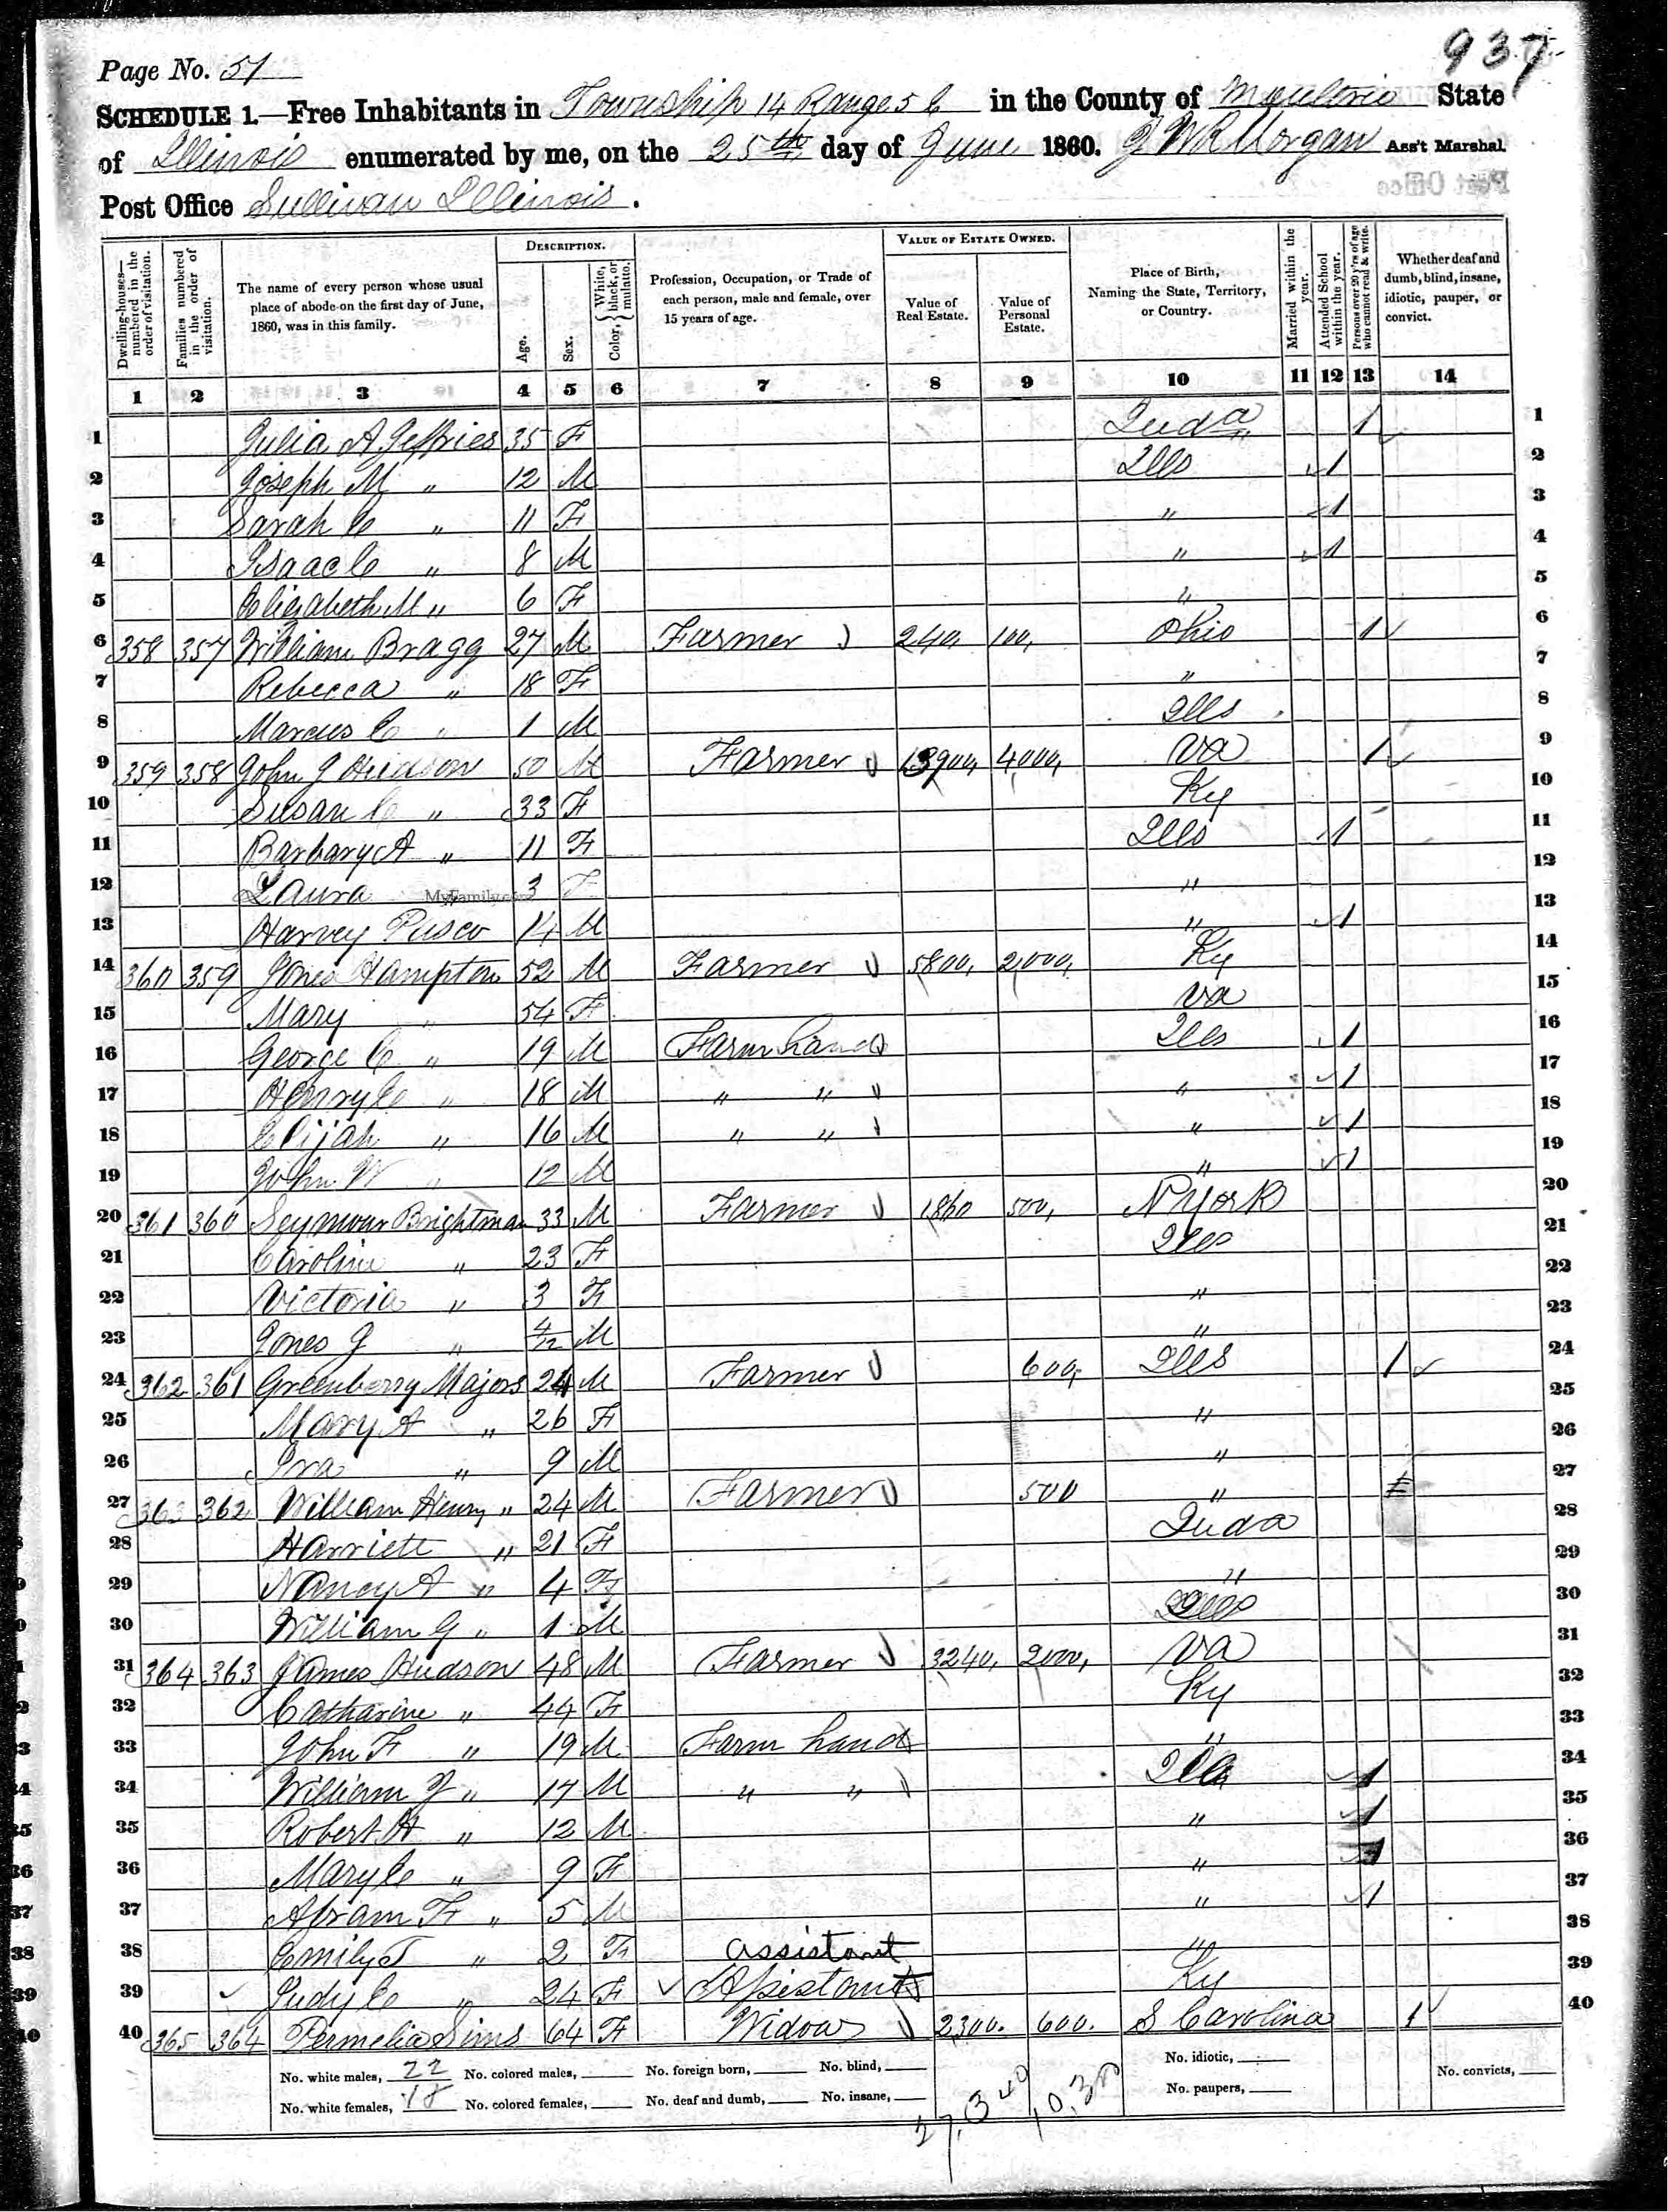 937
Page No. 51
SCHEDULE 1.—Free Inhabitants in Township 14 Range 5 E in the County of Moultrie State
of Illinois enumerated by me, on the 25th day of June 1860. Morgan Ass't Marshal.
Post Office Sullivan Illinois.
Dwelling-houses—numbered in the order of visitation.
Families numbered in the order of visitation.
The name of every person whose usual place of abode on the first day of June, 1860, was in this family.
DESCRIPTION.
Age.
Sex.
Color, { White, black, or mulatto.
Profession, Occupation, or Trade of each person, male and female, over 15 years of age.
VALUE OF ESTATE OWNED.
Value of Real Estate.
Value of Personal Estate.
Place of Birth, Naming the State, Territory, or Country.
Married within the year.
Attended School within the year.
Persons over 20 y'rs of age who cannot read & write.
Whether deaf and dumb, blind, insane, idiotic, pauper, or convict.
1 2 3 4 5 6 7 8 9 10 11 12 13 14
1 Julia A Jeffries 35 F Inda 1 1
2 Joseph M " 12 M Ills 1 2
3 Sarah C " 11 F " 1 3
4 Isaac C " 8 M " 1 4
5 Elizabeth M " 6 F " 5
6 358 357 William Bragg 27 M Farmer 240, 100, Ohio 1 6
7 Rebecca " 18 F " 7
8 Marcus C " 1 M Ills 8
9 359 358 John J Hudson 50 M Farmer 13900, 4,000, Va 1 9
10 Susan C " 33 F Ky 10
11 Barbary A " 11 F Ills 1 11
12 Laura 3 F " 12
13 Harvey 14 M " 1 13
14 360 359 Jones Hampton 52 M Farmer 5800, 2,000, Ky 14
15 Mary " 54 F Va 15
16 George C " 19 M Farm hand Ills 1 16
17 Henry C " 18 M " " " 1 17
18 Elijah " 16 M " " " 1 18
19 John W " 12 M " 1 19
20 361 360 Seymour Brightman 33 M Farmer 1860 500, N York 20
21 Caroline " 23 F Ills 21
22 Victoria " 3 F " 22
23 Jones J " 4/12 M " 23
24 362 361 Greenberry Majors 24 M Farmer 600, Ills 1 24
25 Mary A " 26 F " 25
26 Ira " 9 M " 26
27 363 362 William Henry " 24 M Farmer 500 " 27
28 Harriett " 21 F Inda 28
29 Nancy A " 4 F " 29
30 William G " 1 M Ills 30
31 364 363 James Hudson 48 M Farmer 3240, 2000, Va 31
32 Catharine " 44 F Ky 32
33 John F " 19 M Farm hand " 33
34 William J " 17 M " " Ills 1 34
35 Robert H " 12 M " 1 35
36 Mary C " 9 F " 1 36
37 Abram F " 5 M " 1 37
38 Emily J " 2 F assistant " 38
39 Judy C " 24 F Assistant Ky 39
40 365 364 Permelia Sims 64 F Widow 2300. 600. S Carolina 1 40
No. white males, 22 No. colored males, No. foreign born, No. blind, No. idiotic, No. convicts,
No. white females, 18 No. colored females, No. deaf and dumb, No. insane, No. paupers,
27,340 10,300